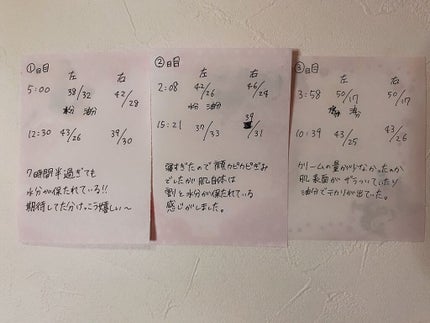 ①日目
左 右
5:00 38/32 42/28
水分 油分
12:30 43/26 39/30
7時間半過ぎても
水分が保たれている!!
期待してた分けっこう嬉しい〜
②日目
左 右
2:08 42/26 46/24
水分 油分
15:21 37/33 39/31
寝すぎたので顔カピカピぎみ
でしたが肌自体は
割と水分が保たれている
感じがしました。
③日目
左 右
3:58 50/17 50/17
油分
10:39 43/25 43/26
クリームの量が少なかったんか
肌表面がザラついていたり
油分でテカリが出ていた。